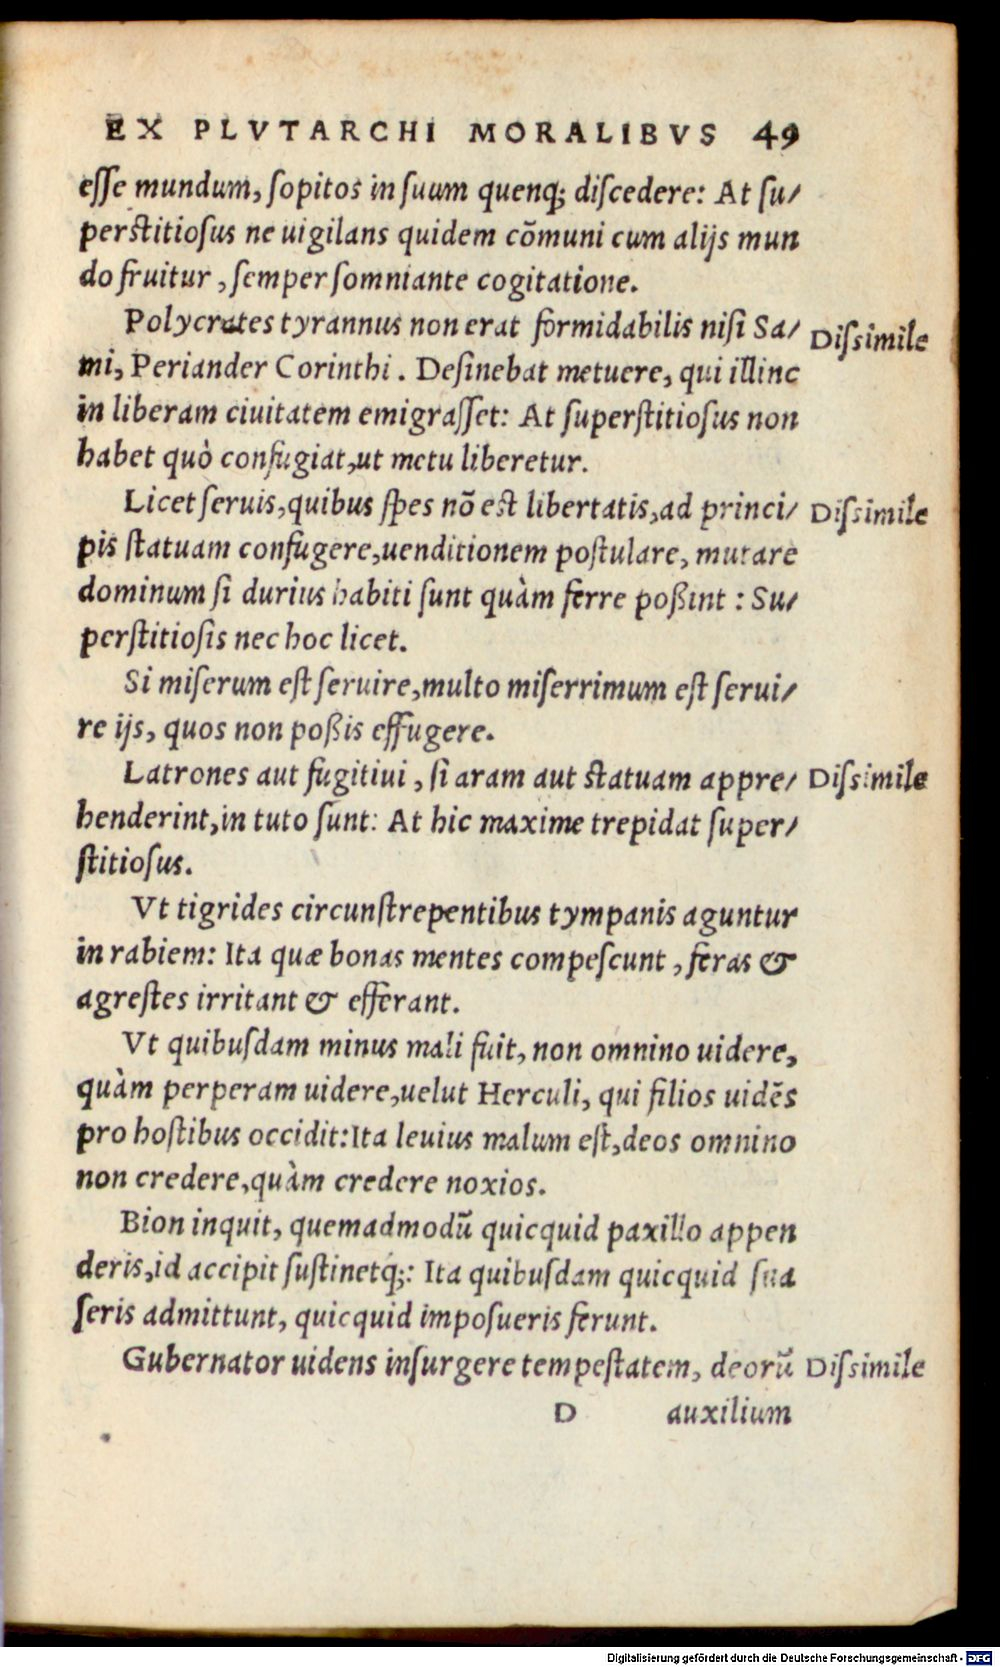 EX PLVTARCHI MORALIBVS 49
esse mundum, sopitos in suum quenq; discedere: At su/
perstitiosus ne uigilans quidem cõmuni cum alijs mun
do fruitur, semper somniante cogitatione.
Polycrates tyrannus non erat formidabilis nisi Sa/ Dissimile
mi, Periander Corinthi. Desinebat metuere, qui illinc
in liberam ciuitatem emigrasset: At superstitiosus non
habet quò confugiat, ut metu liberetur.
Licet seruis, quibus spes nõ est libertatis, ad princi/ Dissimile
pis statuam confugere, uenditionem postulare, mutare
dominum si durius habiti sunt quàm ferre poßint: Su/
perstitiosis nec hoc licet.
Si miserum est seruire, multo miserrimum est serui/
re ijs, quos non poßis effugere.
Latrones aut fugitiui, si aram aut statuam appre/ Dissimile
henderint, in tuto sunt: At hic maxime trepidat super/
stitiosus.
Vt tigrides circunstrepentibus tympanis aguntur
in rabiem: Ita quæ bonas mentes compescunt, feras &
agrestes irritant & efferant.
Vt quibusdam minus mali fuit, non omnino uidere,
quàm perperam uidere, uelut Herculi, qui filios uidẽs
pro hostibus occidit: Ita leuius malum est, deos omnino
non credere, quàm credere noxios.
Bion inquit, quemadmodũ quicquid paxillo appen
deris, id accipit sustinetq́;: Ita quibusdam quicquid sua
seris admittunt, quicquid imposueris ferunt.
Gubernator uidens insurgere tempestatem, deorũ Dissimile
D auxilium
Digitalisierung gefördert durch die Deutsche Forschungsgemeinschaft - DFG